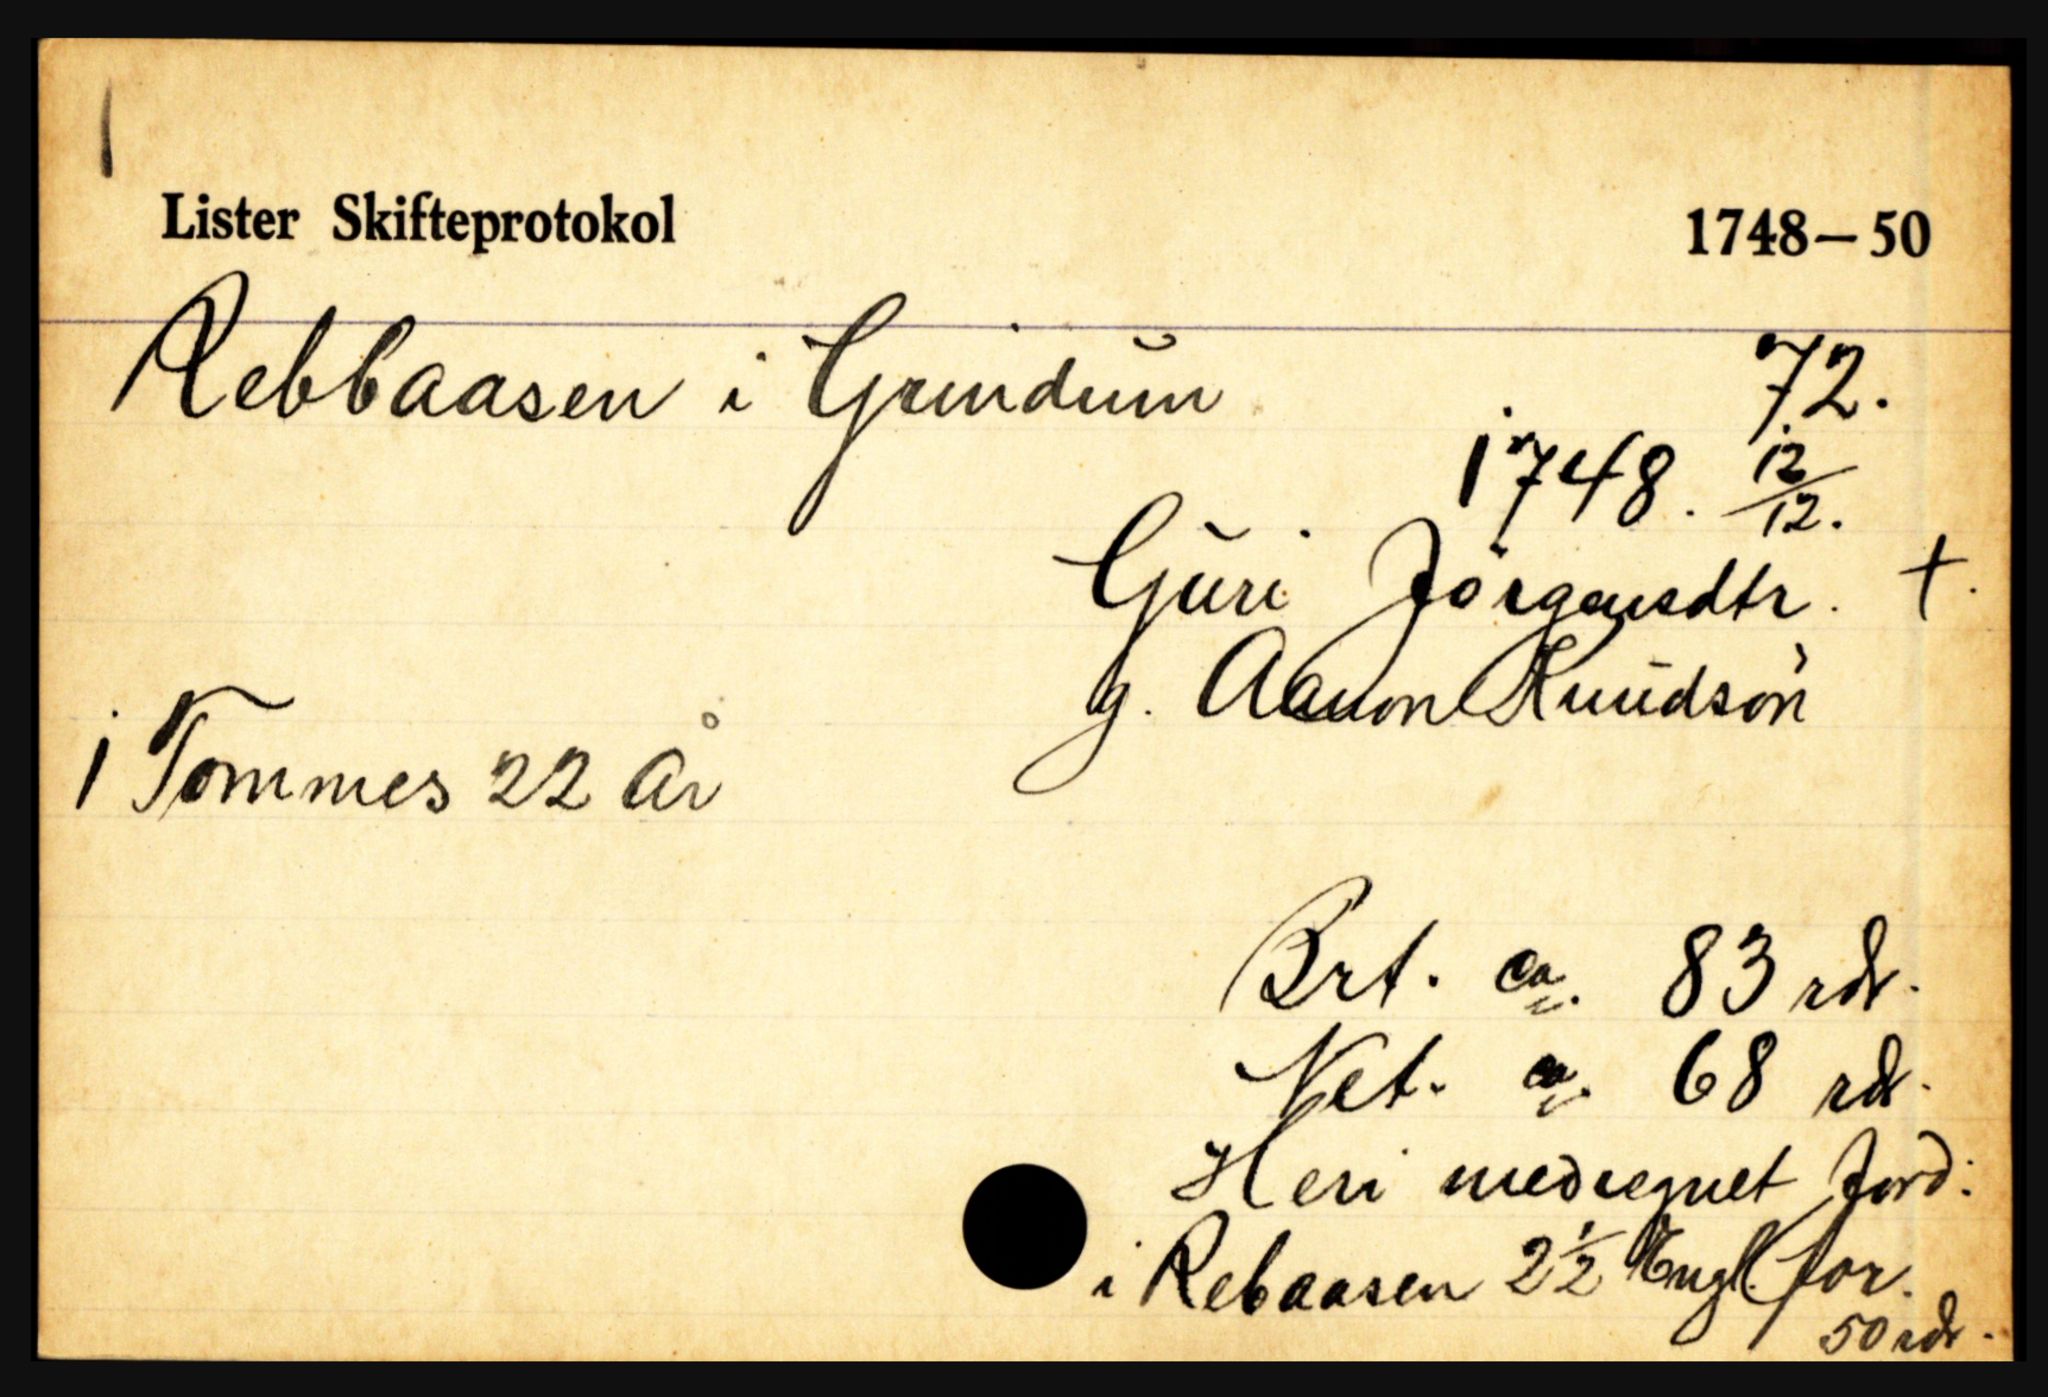 1
Lister Skifteprotokol 1748-50
Rebbaasen i Grindum 72.
1748. 12/12.
Guri Jörgensdtr. †.
g. Aanon Knudsön
1 Tommes 22 år
Brt. ca. 83 rdr.
Net. ca. 68 rdr.
Heri medregnet Jord:
i Rebaasen 2 1/2 Engl. for.
50 rdr.